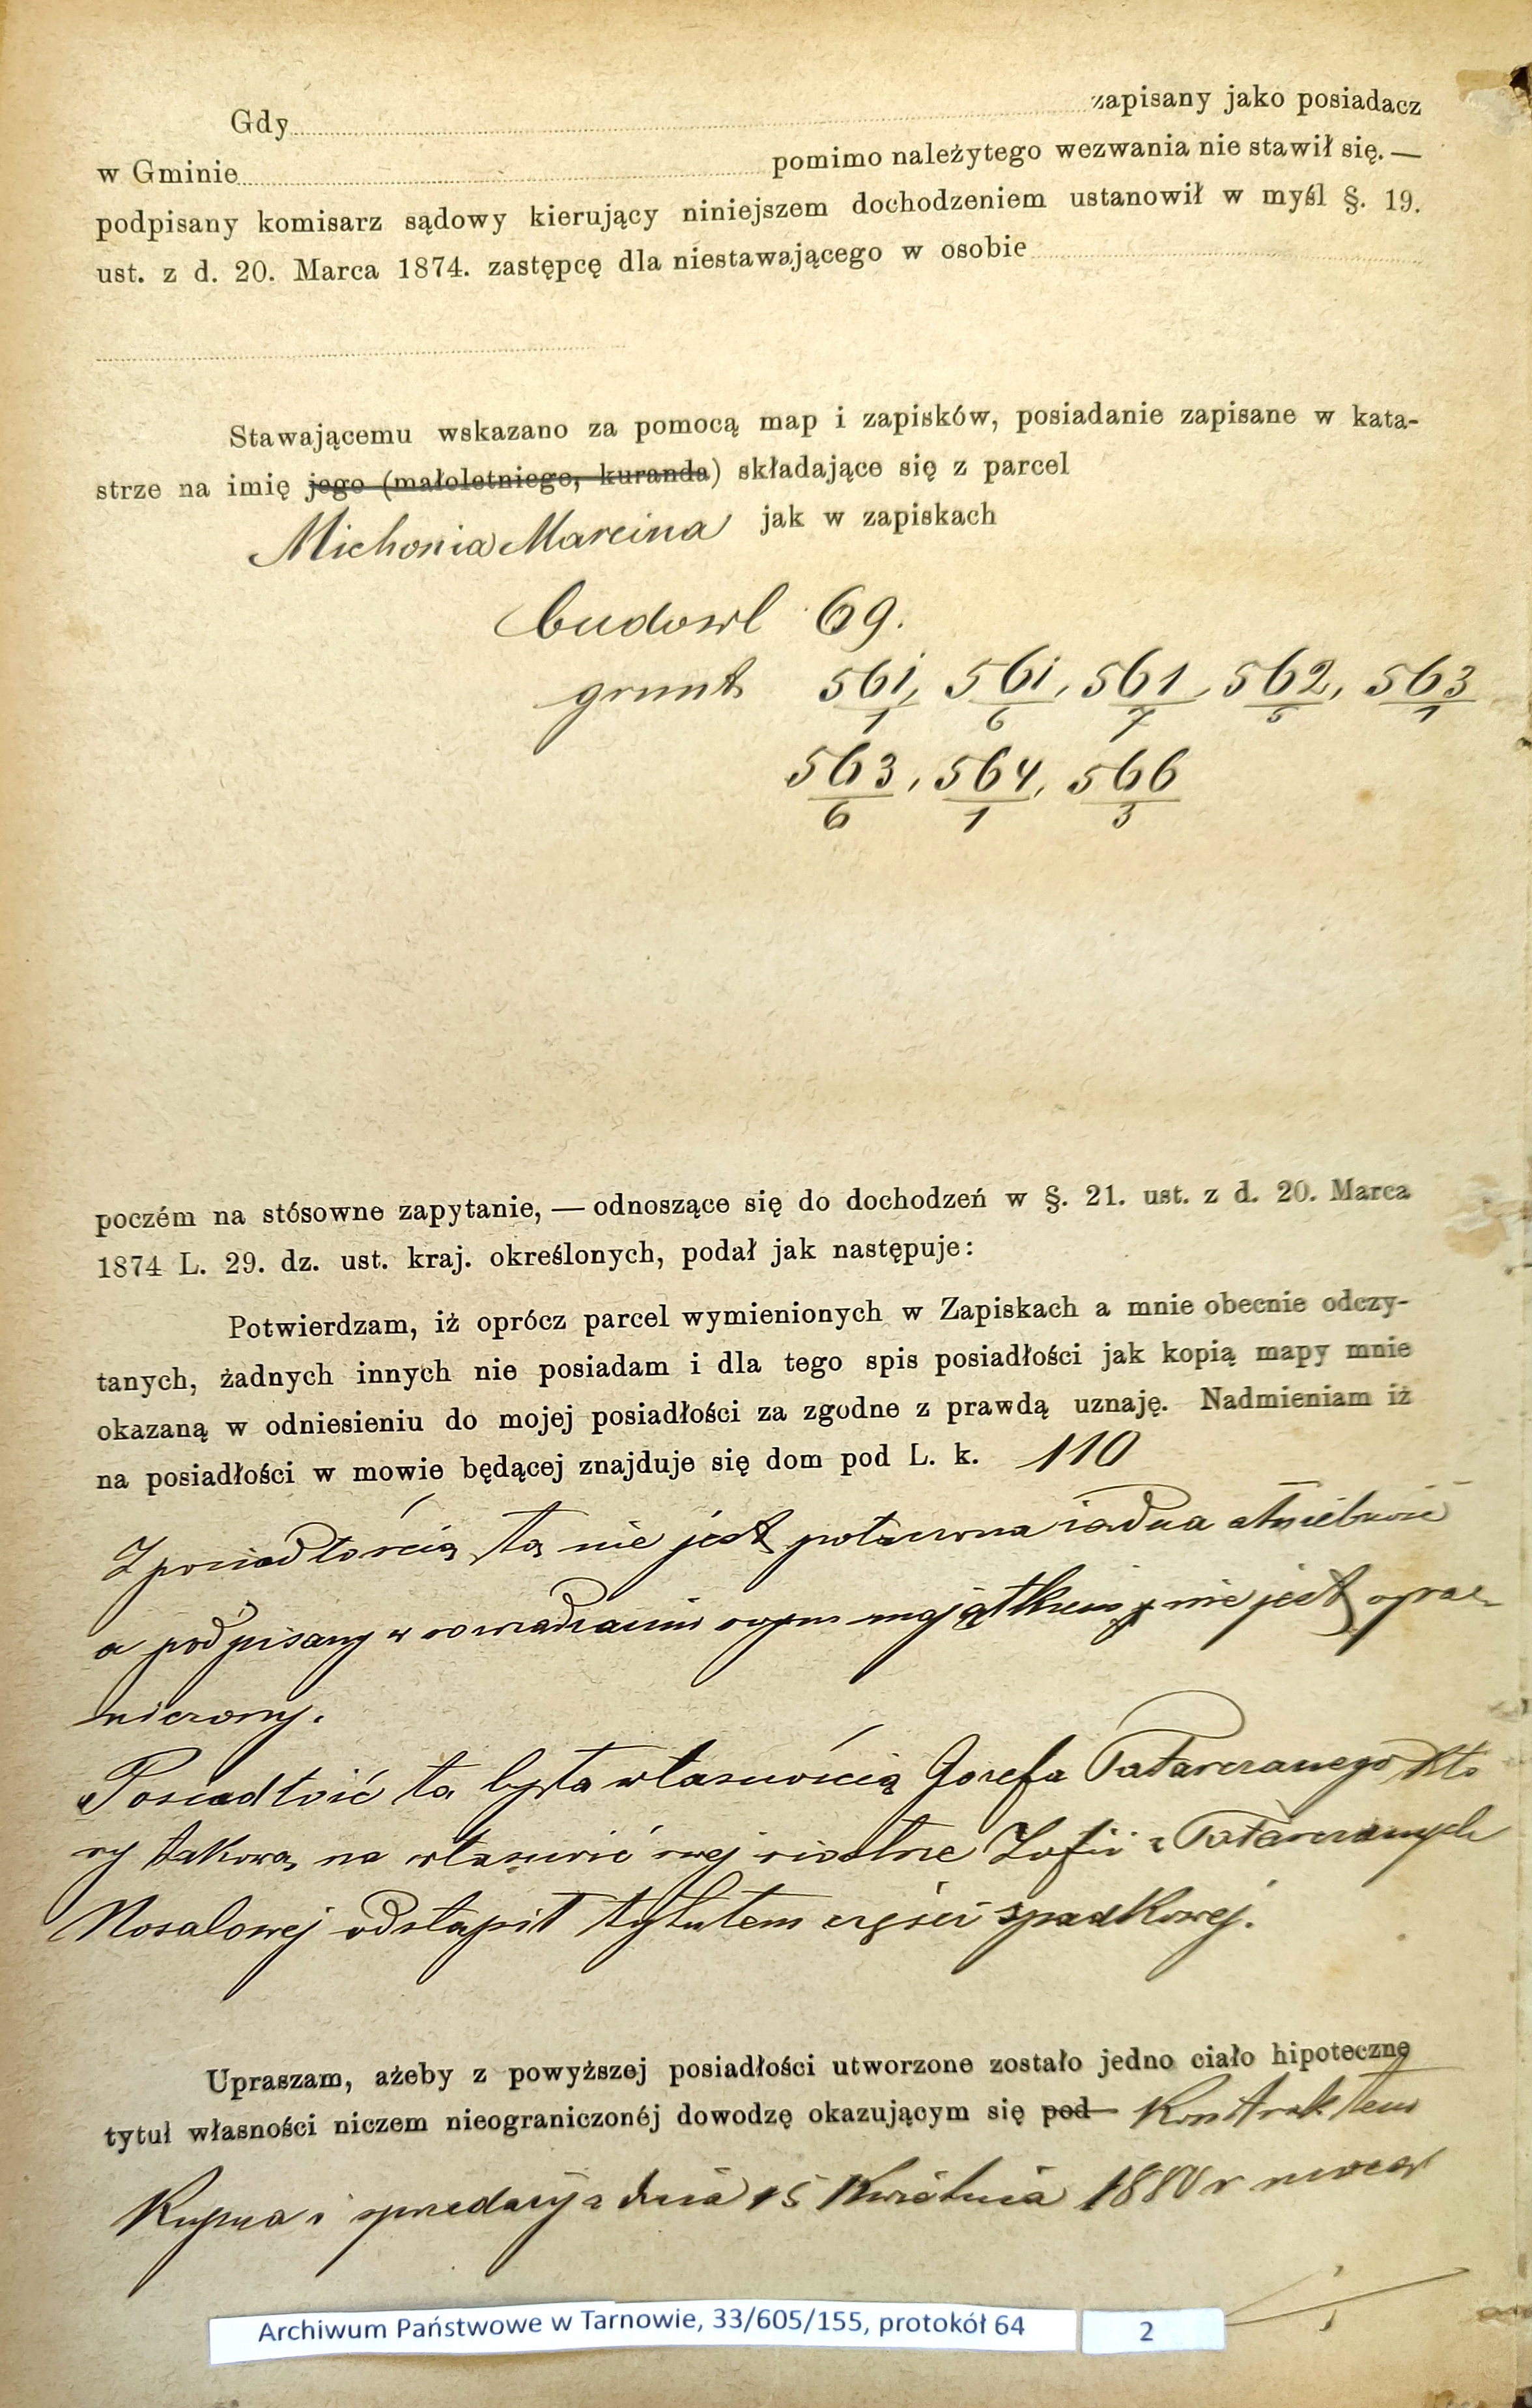 Gdy zapisany jako posiadacz
w Gminie pomimo należytego wezwania nie stawił się. —
podpisany komisarz sądowy kierujący niniejszem dochodzeniem ustanowił w myśl §. 19.
ust. z d. 20. Marca 1874. zastępcę dla niestawającego w osobie
Stawającemu wskazano za pomocą map i zapisków, posiadanie zapisane w kata-
strze na imię jego (małoletniego, kuranda) składające się z parcel
Michonia Marcina jak w zapiskach
budowl 69.
grunt 561/1, 561/6, 561/7, 562/5, 563/1
563/6, 564/1, 566/3
poczém na stósowne zapytanie, — odnoszące się do dochodzeń w §. 21. ust. z d. 20. Marca
1874 L. 29. dz. ust. kraj. określonych, podał jak następuje:
Potwierdzam, iż oprócz parcel wymienionych w Zapiskach a mnie obecnie odczy-
tanych, żadnych innych nie posiadam i dla tego spis posiadłości jak kopią mapy mnie
okazaną w odniesieniu do mojej posiadłości za zgodne z prawdą uznaję. Nadmieniam iż
na posiadłości w mowie będącej znajduje się dom pod L. k. 110
Z posiadłością tą nie jest połączona żadna służebność
a podpisany w rozrządzaniu swym majątkiem nie jest ogra-
niczony.
Posiadłość ta była własnością Józefa Tatarczanego któ
ry takową na własność swej siostrze Zofii z Tatarczanych
Nosalowej odstąpił tytułem części spadkowej.
Upraszam, ażeby z powyższej posiadłości utworzone zostało jedno ciało hipoteczne
tytuł własności niczem nieograniczonéj dowodzę okazującym się pod Kontraktem
Kupna i sprzedaży z dnia 15 Kwietnia 1880 r
Archiwum Państwowe w Tarnowie, 33/605/155, protokół 64
2